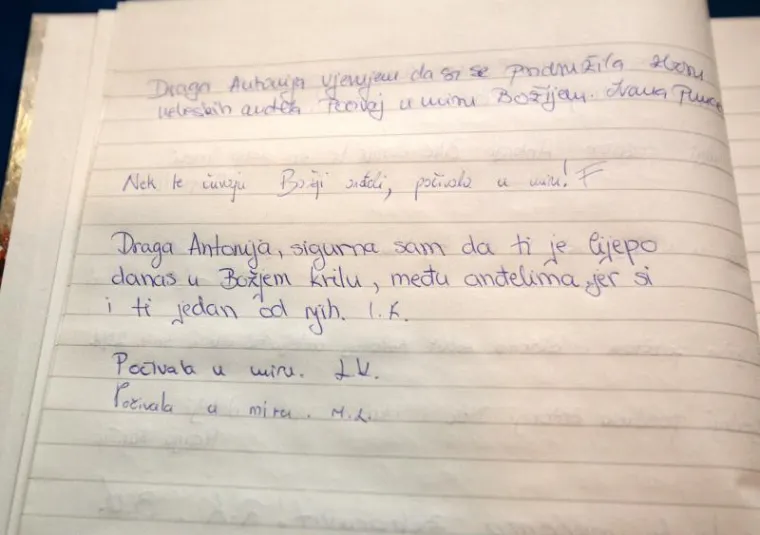 Draga Antonija vjerujem da si se pridružila zboru
nebeskih anđela Počivaj u miru Božijem. Ivana
Nek te čuvaju Božji anđeli, počivala u miru! F
Draga Antonija, sigurna sam da ti je lijepo
danas u Božjem krilu, među anđelima, jer si
i ti jedan od njih. I.K.
Počivala u miru. LV.
Počivala u miru. M.L.